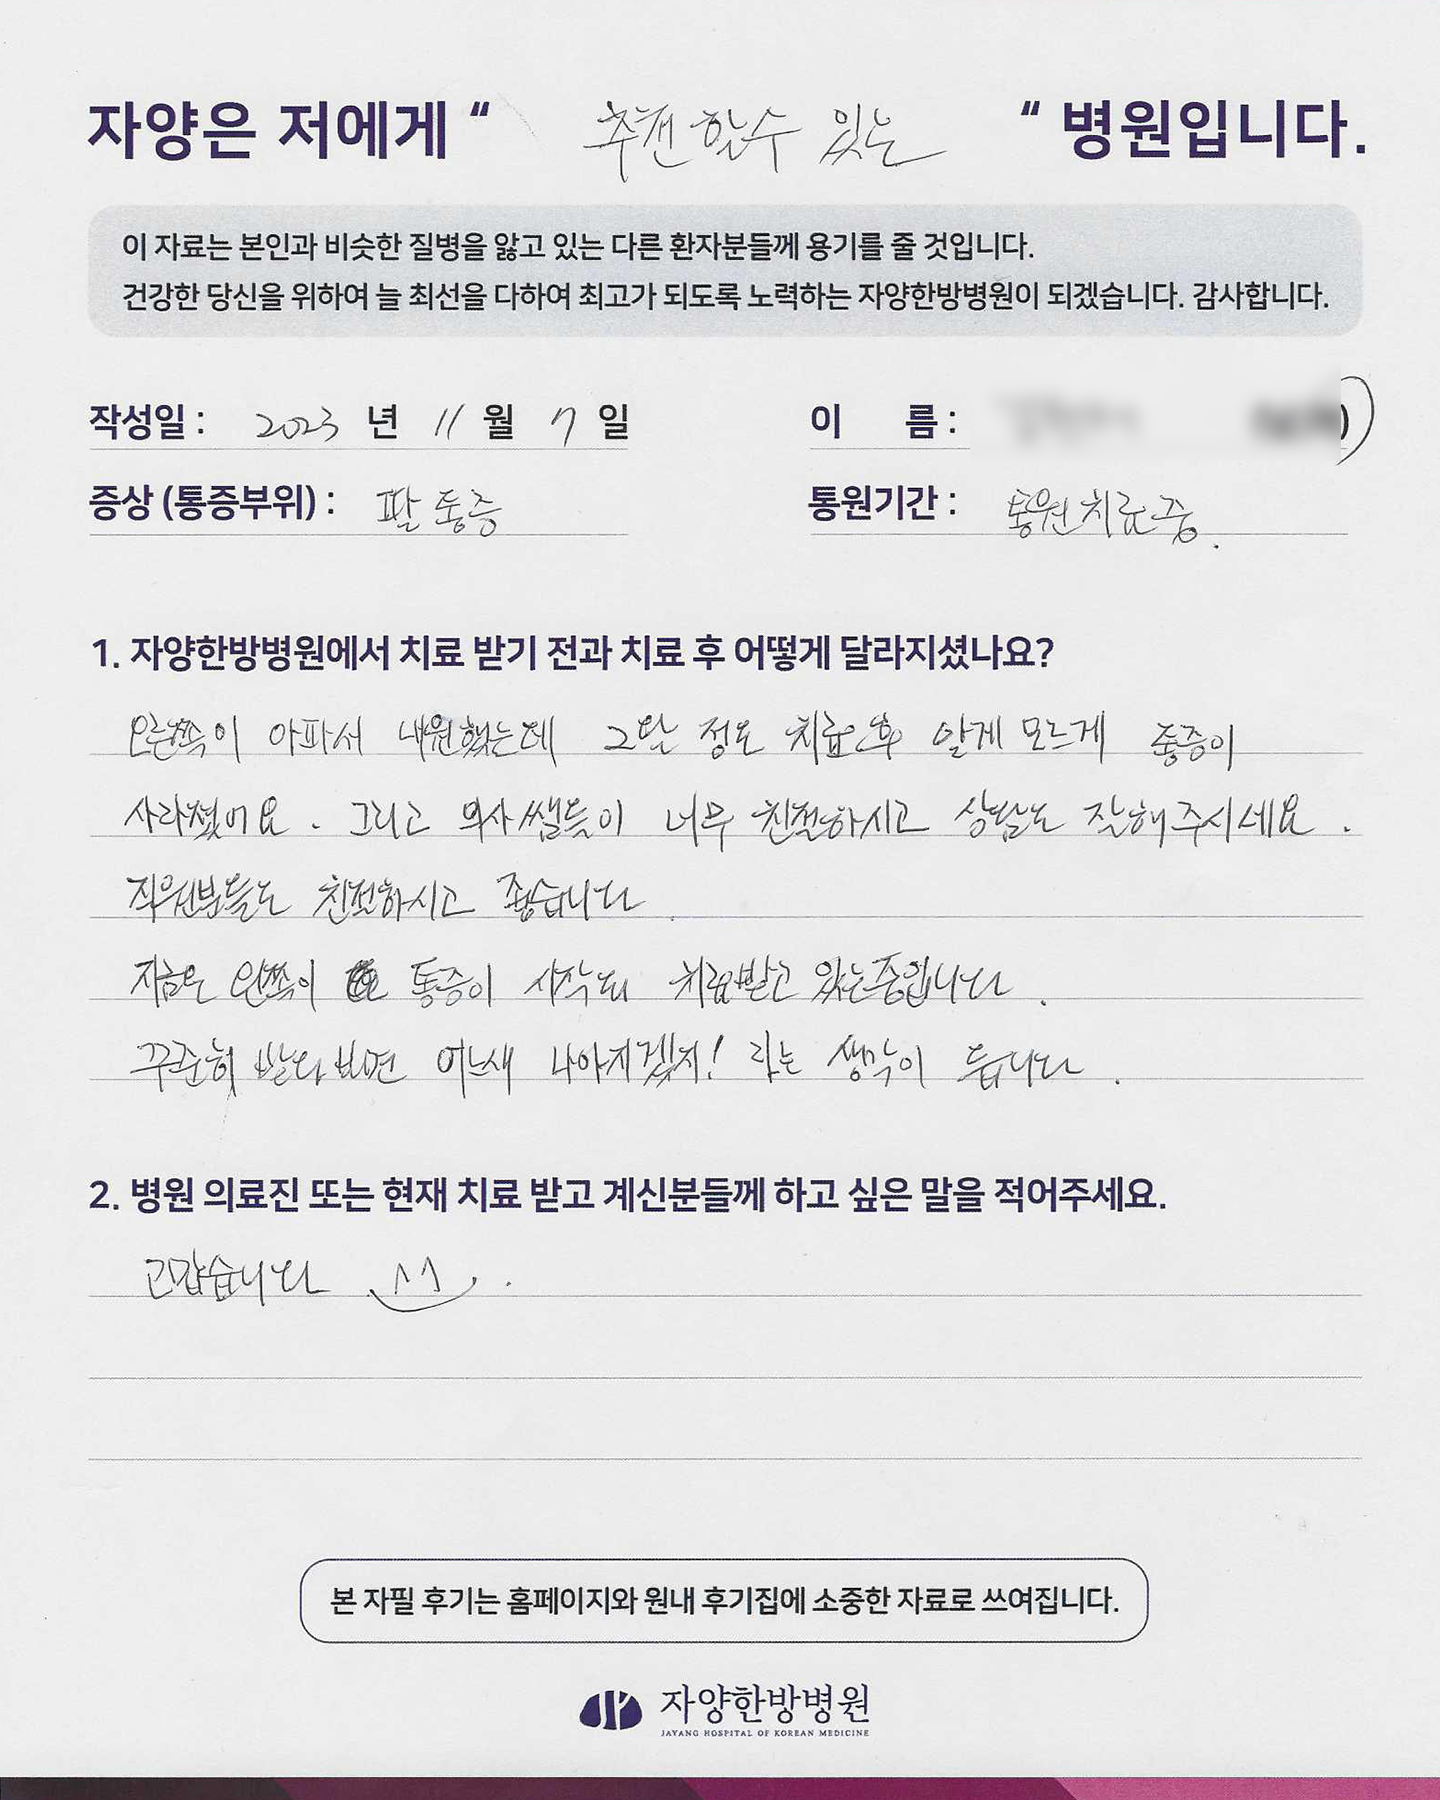 자양은 저에게 " 추천할수 있는 " 병원입니다.
이 자료는 본인과 비슷한 질병을 앓고 있는 다른 환자분들께 용기를 줄 것입니다.
건강한 당신을 위하여 늘 최선을 다하여 최고가 되도록 노력하는 자양한방병원이 되겠습니다. 감사합니다.
작성일 : 2023 년 11 월 7 일 이 름 :
증상 (통증부위) : 팔 통증 통원기간 : 통원치료중.
1. 자양한방병원에서 치료 받기 전과 치료 후 어떻게 달라지셨나요?
오른쪽이 아파서 내원했는데 2달 정도 치료후 알게 모르게 통증이
사라졌어요. 그리고 의사쌤들이 너무 친절하시고 상담도 잘해주시네요.
직원분들도 친절하시고 좋습니다.
지금은 왼쪽이 통증이 시작되 치료받고 있는중입니다.
꾸준히 받다보면 어느새 나아지겠지! 라는 생각이 듭니다.
2. 병원 의료진 또는 현재 치료 받고 계신분들께 하고 싶은 말을 적어주세요.
고맙습니다 ^^.
본 자필 후기는 홈페이지와 원내 후기집에 소중한 자료로 쓰여집니다.
자양한방병원
JAYANG HOSPITAL OF KOREAN MEDICINE